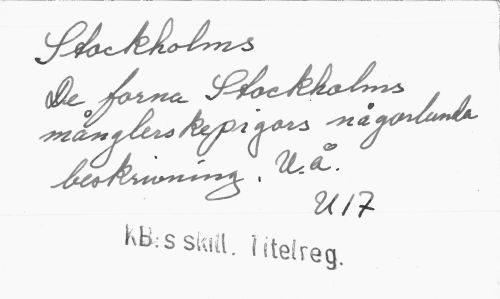 Stockholms
De forna Stockholms
månglerskepigors någorlunda
beskrivning. U.å.
U 17
KB:s skill. Titelreg.